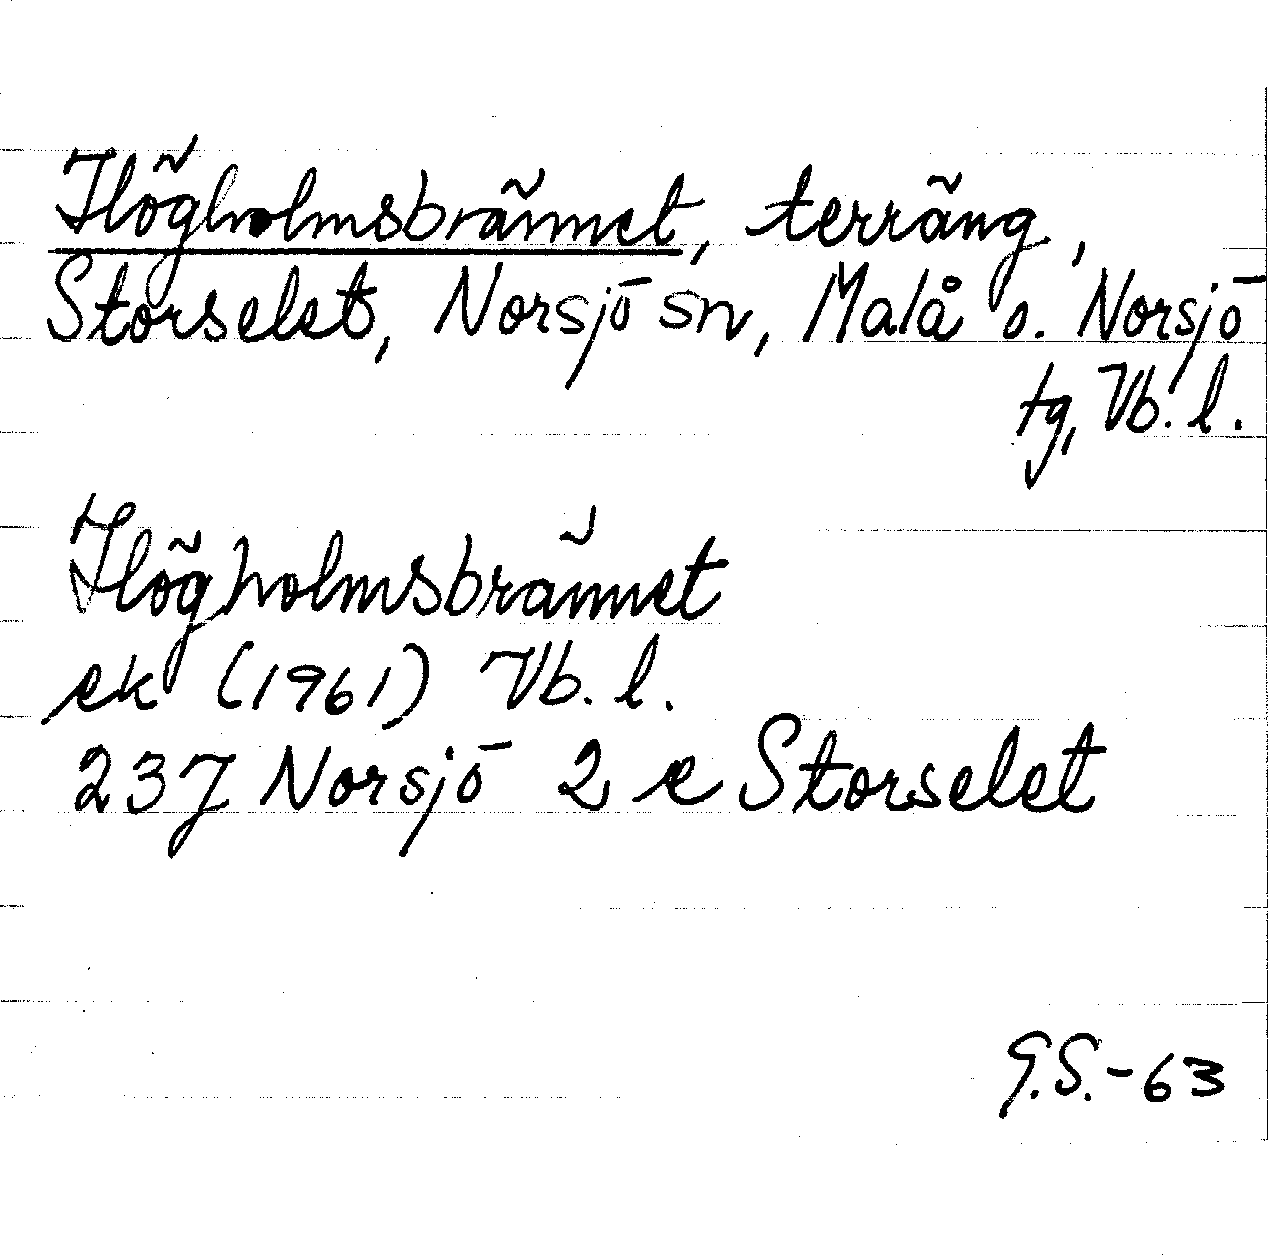 Högholmsbrännet, terräng,
Storselet, Norsjö sn, Malå o. Norsjö
tg, Vb. l.
Högholmsbrännet
ek (1961) Vb. l.
237 Norsjö 2 e Storselet
G.S.-63